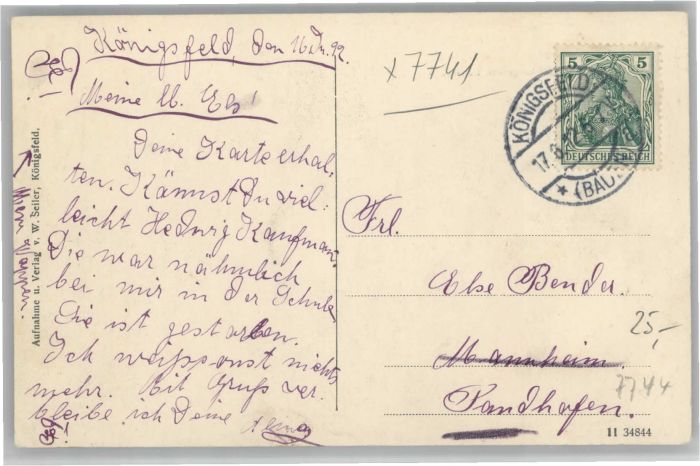 Königsfeld, den 16.
Meine ll. Els!
Deine Karte erhal-
ten. Kännst du viel-
leicht Hedwig Kaufman
Die war nähmlich
bei mir in der Schule
Sie ist gestorben.
Ich weiss sonst nichts
mehr. Mit Gruß ver-
bleibe ich Deine
Aufnahme u. Verlag v. W. Seiler, Königsfeld.
x 7741
5 5
DEUTSCHES REICH
KÖNIGSFELD
17.8.
(BADEN)
Frl.
Else Bender.
Mannheim.
Sandhofen.
25,-
7744
11 34844